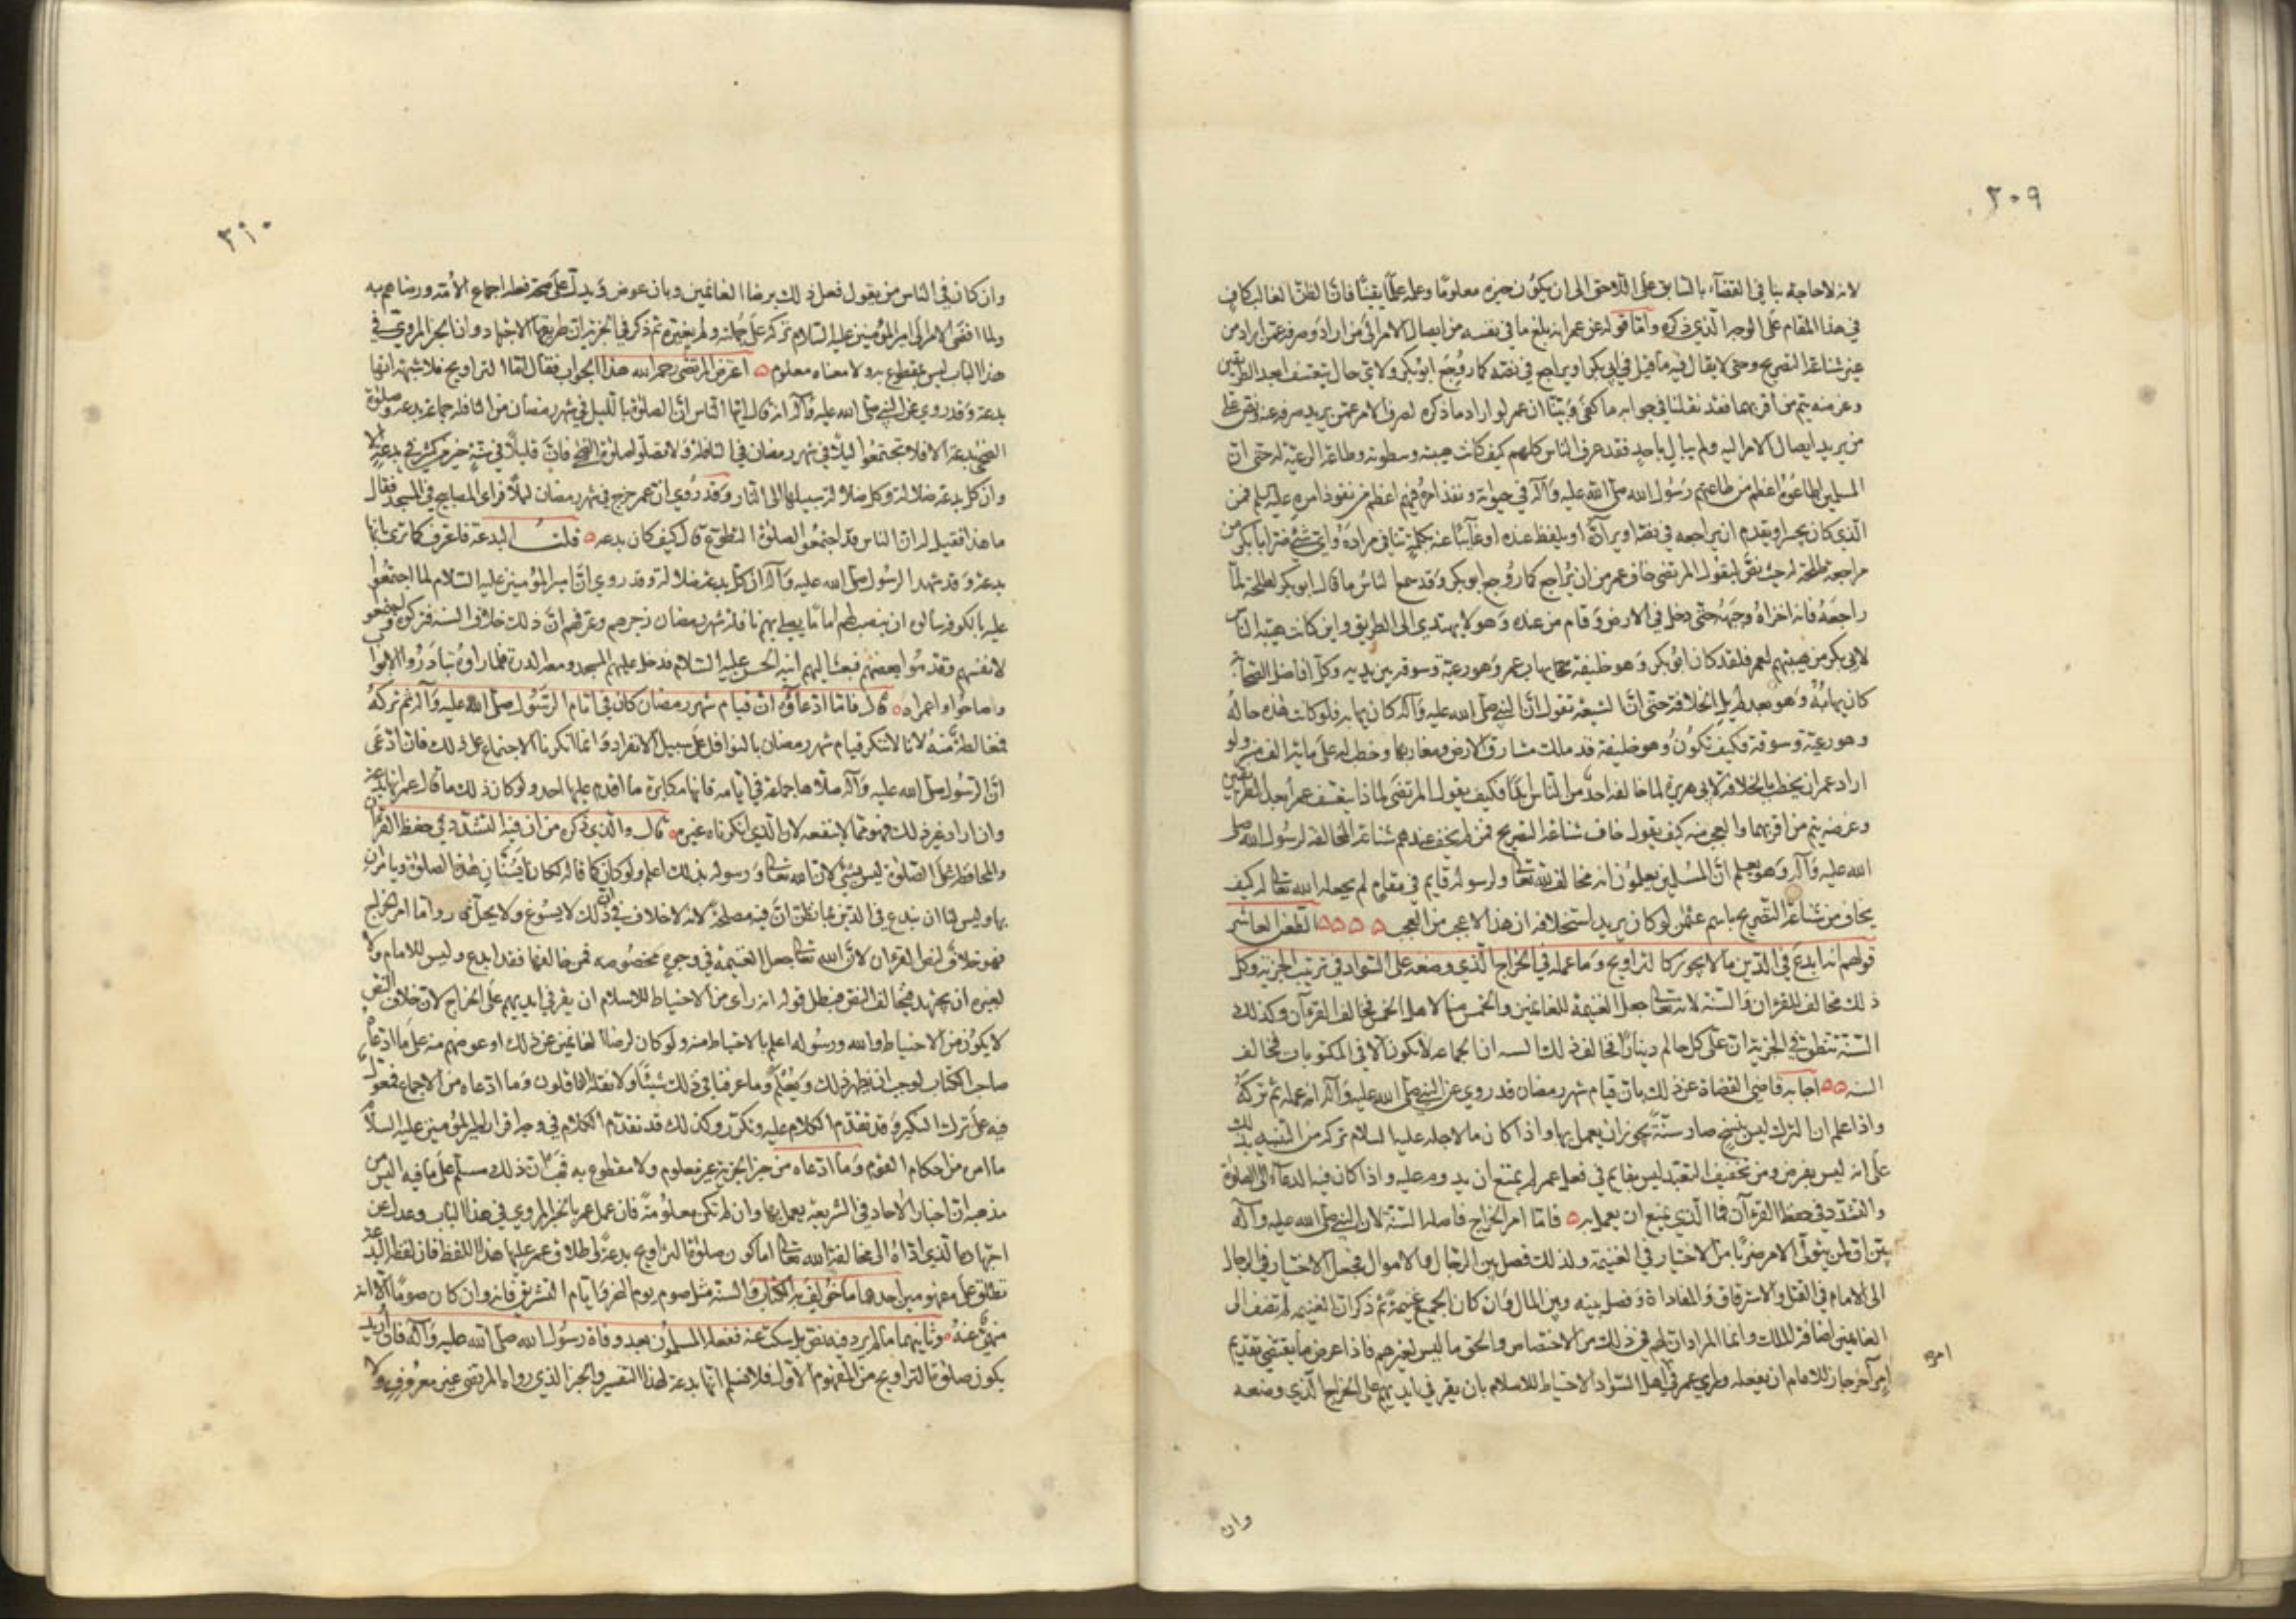 ٢٠٩
لانه لا حاجة بنا في القضآء بالسابق على اللاحق الى ان يكون خبره معلومًا وعلمه علمًا يقينًا فان الظن الغالب كافٍ
في هذا المقام على الوجه الذي ذكره وامّا قوله عن عمر انه بلغ ما في نفسه من ايصال الامر الى من اراد وصرفه عمن اراد من
غير شناعة التصريح وحتى لا يقال فيه ما قيل في ابي بكر او يراجع في نصّه كما روجع ابو بكر ولاي حال يتعسف ابعد الطريقين
وغرضه يتم من اقربهما فقد نقلنا في جوابه ما كفى وبيّنا ان عمر لو اراد ما ذكره لصرف الامر عمن يريد صرفه عنه ونص على
من يريد ايصال الامر اليه ولم يبال باحدٍ فقد عرف الناس كلهم كيف كانت هيبته وسطوته وطاعة الرعيّة له حتى انّ
المسلمين اطاعوه اعظم من طاعتهم رسول الله صلى الله عليه وآله في حيوته ونفذ امره فيهم اعظم من نفوذ امره عليه السلم فمن
الذي كان يجسر او يقدم ان يراجعه في نصّه او يرادّه او يلفظ عنده او غآئبًا عنه بكلمة تنافي مراده واي شئ ضرّ ابا بكر من
مراجعة طلحة له حيث نصّ ليقول المرتضى خاف عمر من ان يُراجع كما روجع ابو بكر وقد سمع الناس ما قال ابو بكر لطلحة لمّا
راجعه فانه اخزاه وجبهه حتى دخل في الارض وقام من عنده وهو لا يهتدي الى الطريق واين كانت هيبة الناس
لابي بكر من هيبتهم لعمر فلقد كان ابو بكر وهو خليفة يهاب عمر وهو رعيّة وسوقة بين يديه وكلّ افاضل الصحابة
كان يهابه وهو بعد لم يل الخلافة حتى انّ الشيعة تقول انّ النبي صلى الله عليه وآله كان يهابه فلو كانت هذه حاله
وهو رعيّة وسوقة فكيف تكون وهو خليفة قد ملك مشارق الارض ومغاربها وخطب له على مائة الف منبر ولو
اراد عمر ان يخطب بالخلافة لابي هريرة لما خالفه احد من الناس ابدا فكيف يقول المرتضى لماذا يتعسف عمر ابعد الطريقين
وغرضه يتم من اقربهما والعجب منه كيف يقول خاف شناعة التصريح فمن لم يخف عندهم شناعة المخالفة لرسول الله صلى
الله عليه وآله وهو يعلم انّ المسلمين يعلمون انه مخالف لله تعالى ولرسوله قايم في مقام لم يجعله الله تعالى له كيف
يخاف من شناعة التصريح باسم عثمن لو كان يريد استخلافه ان هذا لاعجب من العجب الطعن العاشر
قولهم انه ابدع في الدين ما لا يجوز كالتراويح وما عمله في الخراج الذي وضعه على السواد في ترتيب الجزية وكل
ذلك مخالف للقران والسنة لانه تعالى جعل الغنيمة للغانمين والخمس منها لاهل الخمس فخالف القرآن وكذلك
السنّة تنطق في الجزية ان على كل حالم دينارًا فخالف ذلك السنه ان الجماعه لا تكون الا في المكتوبات فخالف
السنه اجاب قاضي القضاة عن ذلك بان قيام شهر رمضان قد روي عن النبي صلى الله عليه وآله انه عمله ثم تركه
واذا علم ان الترك ليس بنسخ صار سنّة يجوز ان يعمل بها واذا كان ما لاجله عليه السلام تركه من التنبيه بذلك
على انه ليس بفرض ومن تخفيف التعبد ليس بقايم في فعل عمر لم يمتنع ان يدوم عليه واذا كان فيه الدعاء الى الصلوة
والتشدد في حفظ القرآن فما الذي يمنع ان يعمل به فامّا امر الخراج فاصله السنّة لانّ النبي صلى الله عليه وآله
بيّن ان لمن يتولى الامر ضربًا من الاختيار في الغنيمة ولذلك فصل بين الرجال والاموال فجعل الاختيار في الرجال
الى الامام في القتل والاسترقاق والمفاداة وفصل بينه وبين المال وان كان الجميع غنيمةً ثم ذكر ان الغنيمه لم تضف الى
الغانمين اضافة الملك وانما المراد ان لهم في ذلك من الاختصاص والحق ما ليس لغيرهم فاذا عرض ما يقتضي تقديم
امر آخر جاز للامام ان يفعله وراي عمر في اهل السواد الاحتياط للاسلام بان يقر في ايديهم على الخراج الذي وضعه
وان
٢١٠
وان كان في الناس من يقول فعل ذلك برضا الغانمين وبان عوض ويدل على صحة فعله اجماع الامّة ورضاهم به
ولما افضى الامر الى امير المؤمنين عليه السلام تركه على جملته ولم يغيّره ثم ذكر في الجزية ان طريقها الاجتهاد وان الخبر المروي في
هذا الباب ليس بمقطوع به ولا معناه معلوم اعترض المرتضى رحمه الله هذا الجواب فقال امّا التراويح فلا شبهة انها
بدعة وقد روي عن النبي صلى الله عليه وآله انه قال ايها الناس ان الصلوة بالليل في شهر رمضان من النافلة جماعة بدعة وصلوة
الضحى بدعة الا فلا تجتمعوا ليلًا في شهر رمضان في النافلة ولا تصلوا صلوة الضحى فان قليلًا في سنّة خير من كثير في بدعة الا
وان كل بدعة ضلالة وكل ضلالة سبيلها الى النار وقد روي ان عمر خرج في شهر رمضان ليلًا فراى المصابيح في المسجد فقال
ما هذا فقيل له ان الناس قد اجتمعوا لصلوة التطوع قال كيف كان بدعه قلت البدعة فاعترف كما ترى بانها
بدعة وقد شهد الرسول صلى الله عليه وآله ان كل بدعة ضلالة وقد روي ان امير المؤمنين عليه السلام لما اجتمعوا
عليه بالكوفة سألوه ان ينصب لهم امامًا يصلي بهم نافلة شهر رمضان زجرهم وعرفهم ان ذلك خلاف السنة فتركوه واجتمعوا
لانفسهم وقدموا بعضهم فبعث اليهم ابنه الحسن عليه السلام فدخل عليهم المسجد ومعه الدرة فلما راوه تبادروا الابواب
وصاحوا واعمراه قال فامّا ادعاؤه ان قيام شهر رمضان كان في ايام الرسول صلى الله عليه وآله ثم تركه
فمغالطة منه لانا لا ننكر قيام شهر رمضان بالنوافل على سبيل الانفراد وانما انكرنا الاجتماع على ذلك فان ادّعى
ان الرسول صلى الله عليه وآله صلّاها جماعة في ايامه فانها مكابرة ما اقدم عليها احد ولو كان ذلك ما قال عمر انها بدعة
وان اراد غير ذلك فهو مما لا ينفعه لان الذي انكرناه غيره قال والذي ذكره من ان فيه التشدد في حفظ القرآن
والمحافظة على الصلوة ليس بشئ لان الله تعالى ورسوله بذلك اعلم ولو كان كما قاله لكانا يسنّان هذه الصلوة ويامران
بها وليس لنا ان نبدع في الدين بما نظن ان فيه مصلحة لانه لا خلاف في ان ذلك لا يسوغ ولا يحل وامّا امر الخراج
فهو خلاف لنص القرآن لان الله تعالى جعل الغنيمة في وجوه مخصوصه فمن خالفها فقد ابدع وليس للامام ولا
لغيره ان يجتهد فيخالف النص فبطل قوله انه راى من الاحتياط للاسلام ان يقر في ايديهم على الخراج لان خلاف النص
لا يكون من الاحتياط والله ورسوله اعلم بالاحتياط منه ولو كان لرضاء الغانمين عن ذلك او عوضهم منه على ما ادعاه
صاحب الكتاب لوجب ان يظهر ذلك ويعلم وما عرفنا في ذلك شيئًا ولا نقله الناقلون وما ادعاه من الاجماع فمعوله
فيه على ترك النكير وقد تقدم الكلام عليه وتكرر وكذلك قد تقدم الكلام في وجه اقرار امير المؤمنين عليه السلام
ما امر من احكام القوم وما ادعاه من خبر الجزية غير معلوم ولا مقطوع به فهب ان ذلك مسلّم على ما فيه اليس من
مذهبه ان اخبار الاحاد في الشريعة يعمل بها وان لم تكن معلومةً فان عمل عمر بالخبر المروي في هذا الباب وعدل عن
اجتهاده الذي ادّاه الى مخالفة الله تعالى اما كون صلوة التراويح بدعةً واطلاق عمر عليها هذا اللفظ فان لفظ البدعة
تطلق على مفهومين احدهما ما خولف به الكتاب والسنة مثل صوم يوم النحر وايام التشريق فانه وان كان صومًا الا انه
منهيّ عنه وثانيهما ما لم يرد فيه نص بل سكت عنه ففعله المسلمون بعد وفاة رسول الله صلى الله عليه وآله فان اريد
بكون صلوة التراويح من المفهوم الاول فلا نسلم انها بدعة لهذا التفسير والخبر الذي رواه المرتضى غير معروف ولا